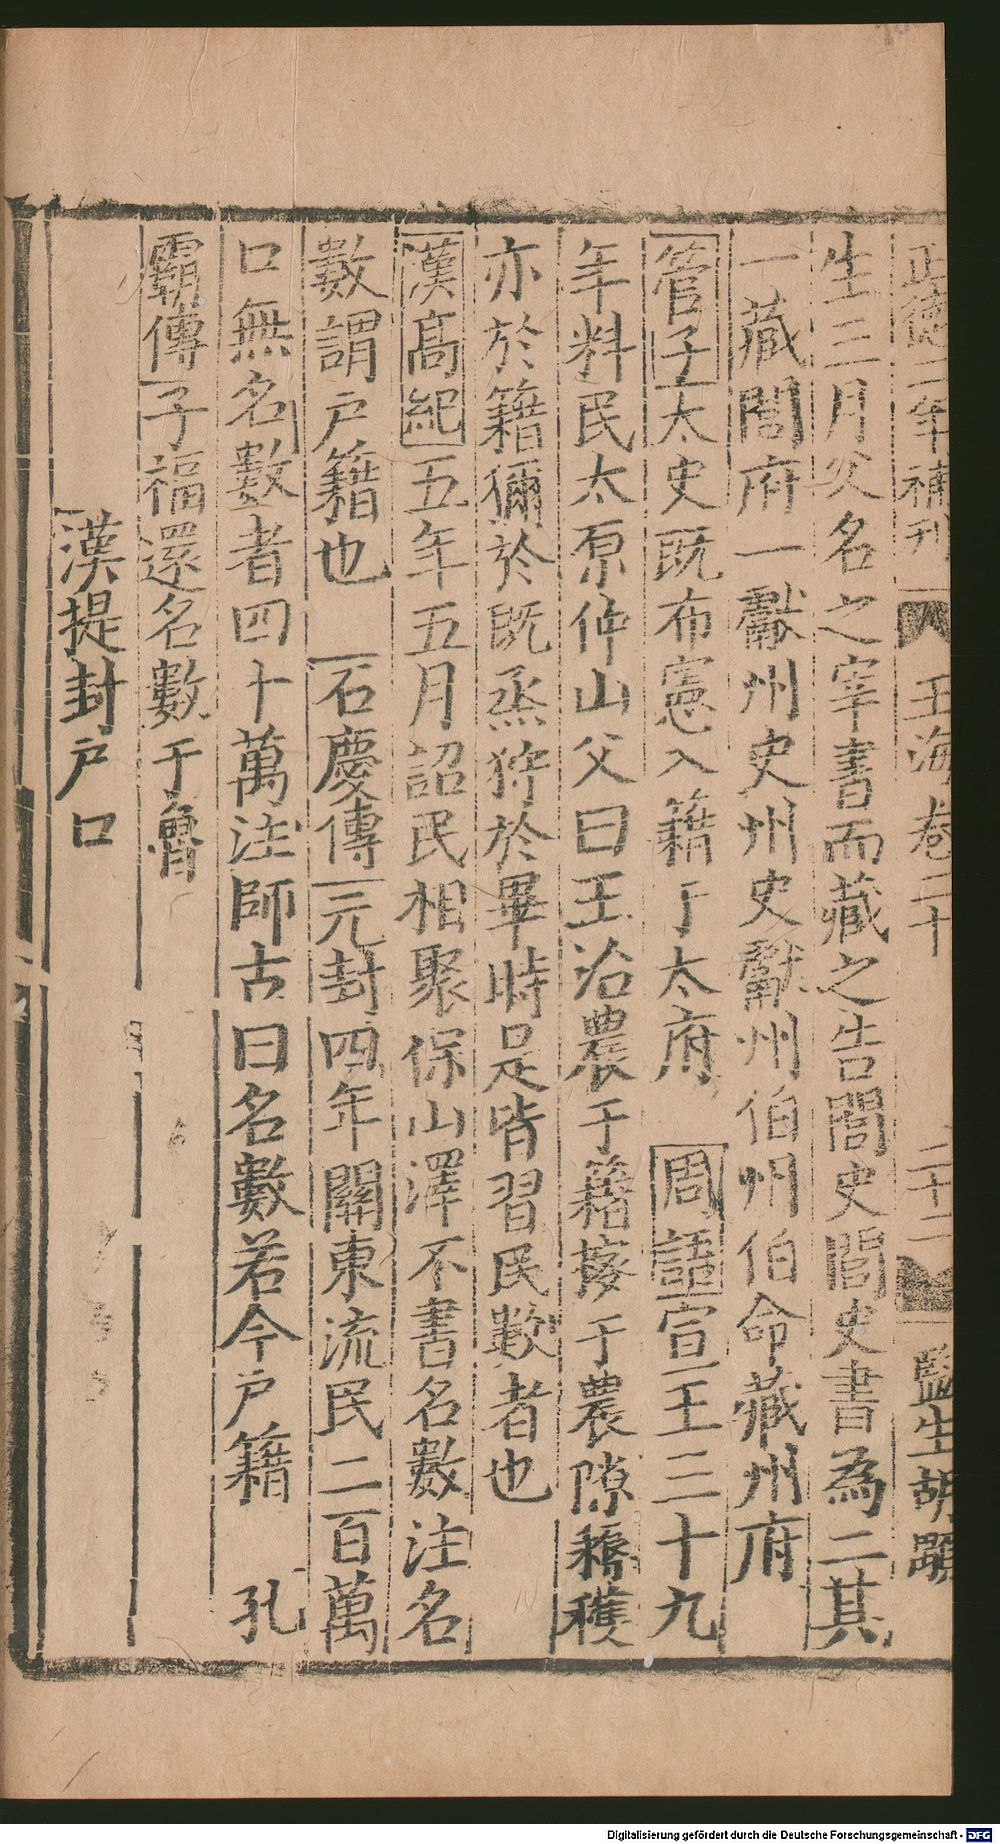 正德二年補刊 玉海卷二十 二十二 監生胡顯
生三月父名之宰書而藏之告閭史閭史書為二其
一藏閭府一獻州史州史獻州伯州伯命藏州府
管子太史既布憲入籍于太府 周語宣王三十九
年料民太原仲山父曰王治農于籍蒐于農隙耨穫
亦於籍獮於既烝狩於畢時是皆習民數者也
漢高紀五年五月詔民相聚保山澤不書名數注名
數謂戶籍也 石慶傳元封四年關東流民二百萬
口無名數者四十萬注師古曰名數若今戶籍 孔
霸傳子福還名數于魯
漢提封戶口
Digitalisierung gefördert durch die Deutsche Forschungsgemeinschaft - DFG